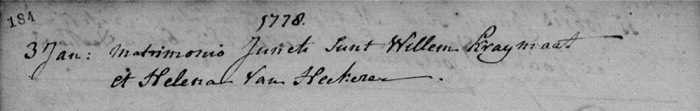 184
1778.
3 Jan: Matrimonio Juncti Sunt Willem Kraymaat
et Helena Van Heekere.